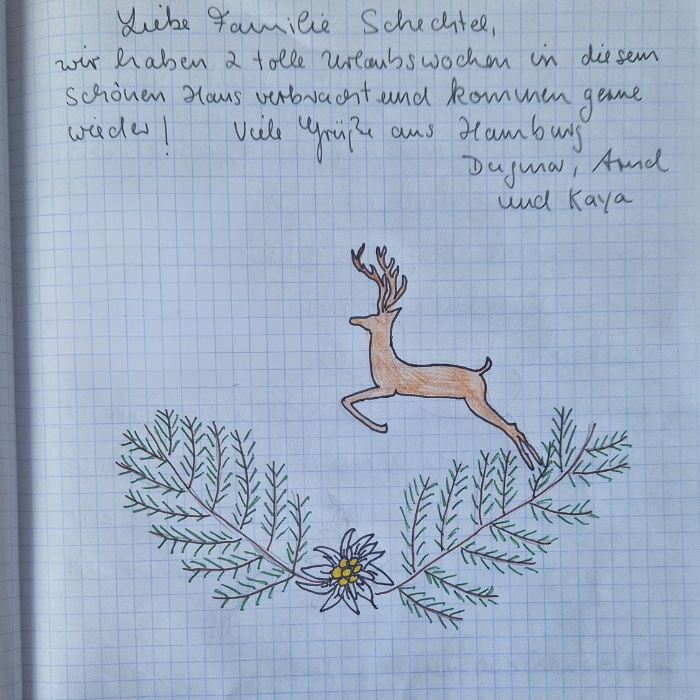 Liebe Familie Schechtel,
wir haben 2 tolle Urlaubswochen in diesem
schönen Haus verbracht und kommen gerne
wieder! Viele Grüße aus Hamburg
Dagmar, Arnd
und Kaya